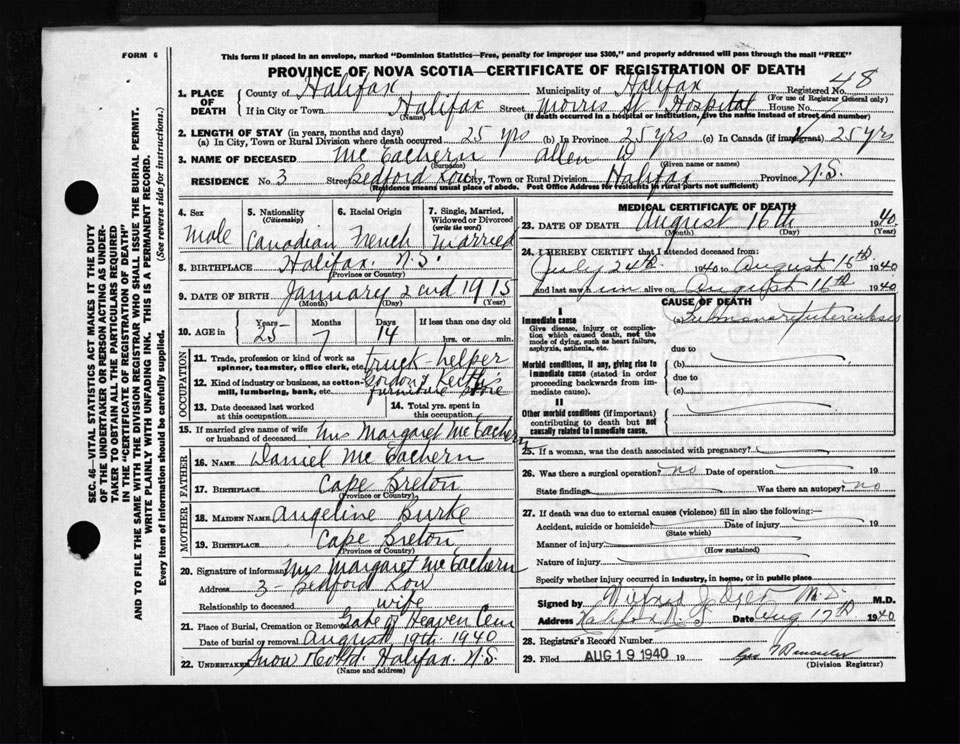 FORM 6
This form if placed in an envelope, marked "Dominion Statistics—Free, penalty for improper use $300," and properly addressed will pass through the mail "FREE"
PROVINCE OF NOVA SCOTIA—CERTIFICATE OF REGISTRATION OF DEATH
48
1. PLACE OF DEATH
County of Halifax Municipality of Halifax Registered No.
(For use of Registrar General only)
If in City or Town Halifax Street Morris St Hospital House No.
(Name) (If death occurred in a hospital or institution, give the name instead of street and number)
2. LENGTH OF STAY (in years, months and days)
(a) In City, Town or Rural Division where death occurred 25 yrs (b) In Province 25 yrs (c) In Canada (if immigrant) 25 yrs
3. NAME OF DECEASED Mc Eachern Allen D
(Surname) (Given name or names)
RESIDENCE No. 3 Street Bedford Row City, Town or Rural Division Halifax Province N.S.
(Residence means usual place of abode. Post Office Address for residents in rural parts not sufficient)
4. Sex
Male
5. Nationality (Citizenship)
Canadian
6. Racial Origin
French
7. Single, Married, Widowed or Divorced (write the word)
Married
8. BIRTHPLACE Halifax. N.S.
(Province or Country)
9. DATE OF BIRTH January 2nd 1915
(Month) (Day) (Year)
10. AGE in Years Months Days If less than one day
25 7 14 hrs. or min.
OCCUPATION
11. Trade, profession or kind of work as spinner, teamster, office clerk, etc. truck-helper
12. Kind of industry or business, as cotton-mill, lumbering, bank, etc. Gordon & Keith furniture store
13. Date deceased last worked at this occupation
14. Total yrs. spent in this occupation
15. If married give name of wife or husband of deceased Mrs Margaret Mc Eachern
FATHER
16. NAME Daniel Mc Eachern
17. BIRTHPLACE Cape Breton
(Province or Country)
MOTHER
18. MAIDEN NAME Angeline Burke
19. BIRTHPLACE Cape Breton
(Province or Country)
20. Signature of informant Mrs Margaret Mc Eachern
Address 3 - Bedford Row
Relationship to deceased wife
21. Place of Burial, Cremation or Removal Gate of Heaven Cem
Date of burial or removal August 19th 1940
22. UNDERTAKER Snow & Co Ltd. Halifax. N.S.
(Name and address)
MEDICAL CERTIFICATE OF DEATH
23. DATE OF DEATH August 16th 1940
(Month) (Day) (Year)
24. I HEREBY CERTIFY that I attended deceased from:
July 24th 1940 to August 16th 1940
and last saw him alive on August 16th 1940
CAUSE OF DEATH
I
Immediate cause Pulmonary tuberculosis
Give disease, injury or complication which caused death, not the mode of dying, such as heart failure, asphyxia, asthenia, etc.
due to
Morbid conditions, if any, giving rise to immediate cause (stated in order proceeding backwards from immediate cause).
(b)
due to
(c)
II
Other morbid conditions (if important) contributing to death but not causally related to immediate cause.
25. If a woman, was the death associated with pregnancy?
26. Was there a surgical operation? no Date of operation 19
State findings Was there an autopsy? no
27. If death was due to external causes (violence) fill in also the following:—
Accident, suicide or homicide? Date of injury 19
(State which)
Manner of injury
(How sustained)
Nature of injury
Specify whether injury occurred in industry, in home, or in public place
Signed by M.D. M.D.
Address Halifax N.S. Date Aug 17th 1940
28. Registrar's Record Number
29. Filed AUG 19 1940 19
(Division Registrar)
SEC. 46—VITAL STATISTICS ACT MAKES IT THE DUTY
OF THE UNDERTAKER OR PERSON ACTING AS UNDER-
TAKER TO OBTAIN ALL THE PARTICULARS REQUIRED
IN THE "CERTIFICATE OF REGISTRATION OF DEATH"
AND TO FILE THE SAME WITH THE DIVISION REGISTRAR WHO SHALL ISSUE THE BURIAL PERMIT.
WRITE PLAINLY WITH UNFADING INK. THIS IS A PERMANENT RECORD.
Every item of information should be carefully supplied. (See reverse side for instructions.)